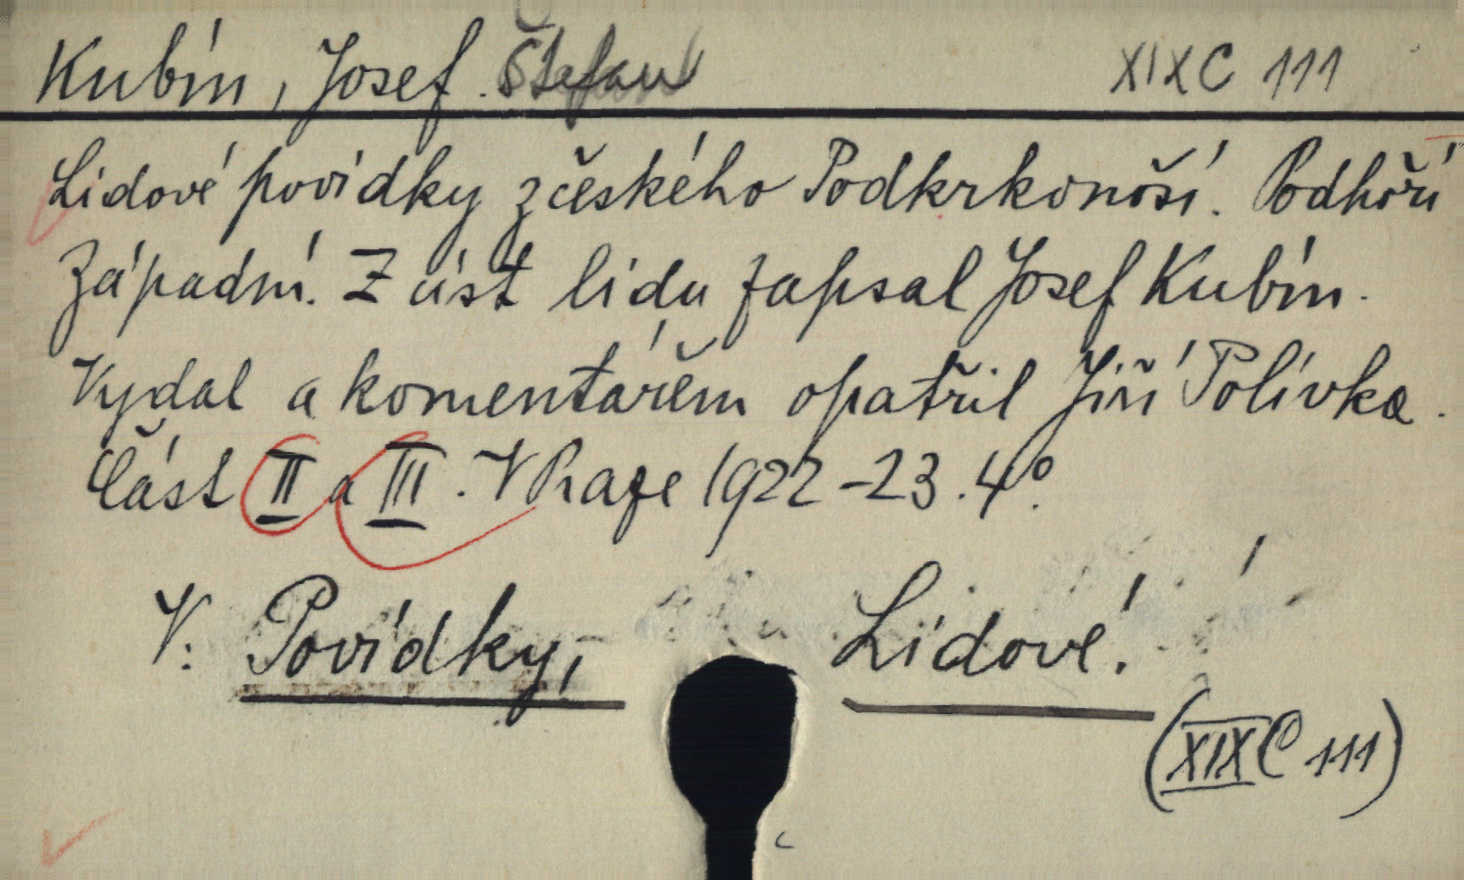 Kubín, Josef Štefan XIX C 111
Lidové povídky z českého Podkrkonoší. Podhoří
Západní. Z úst lidu zapsal Josef Kubín.
Vydal a komentářem opatřil Jiří Polívka.
Část II a III. V Praze 1922-23. 4°.
V: Povídky, Lidové.
(XIX C 111)